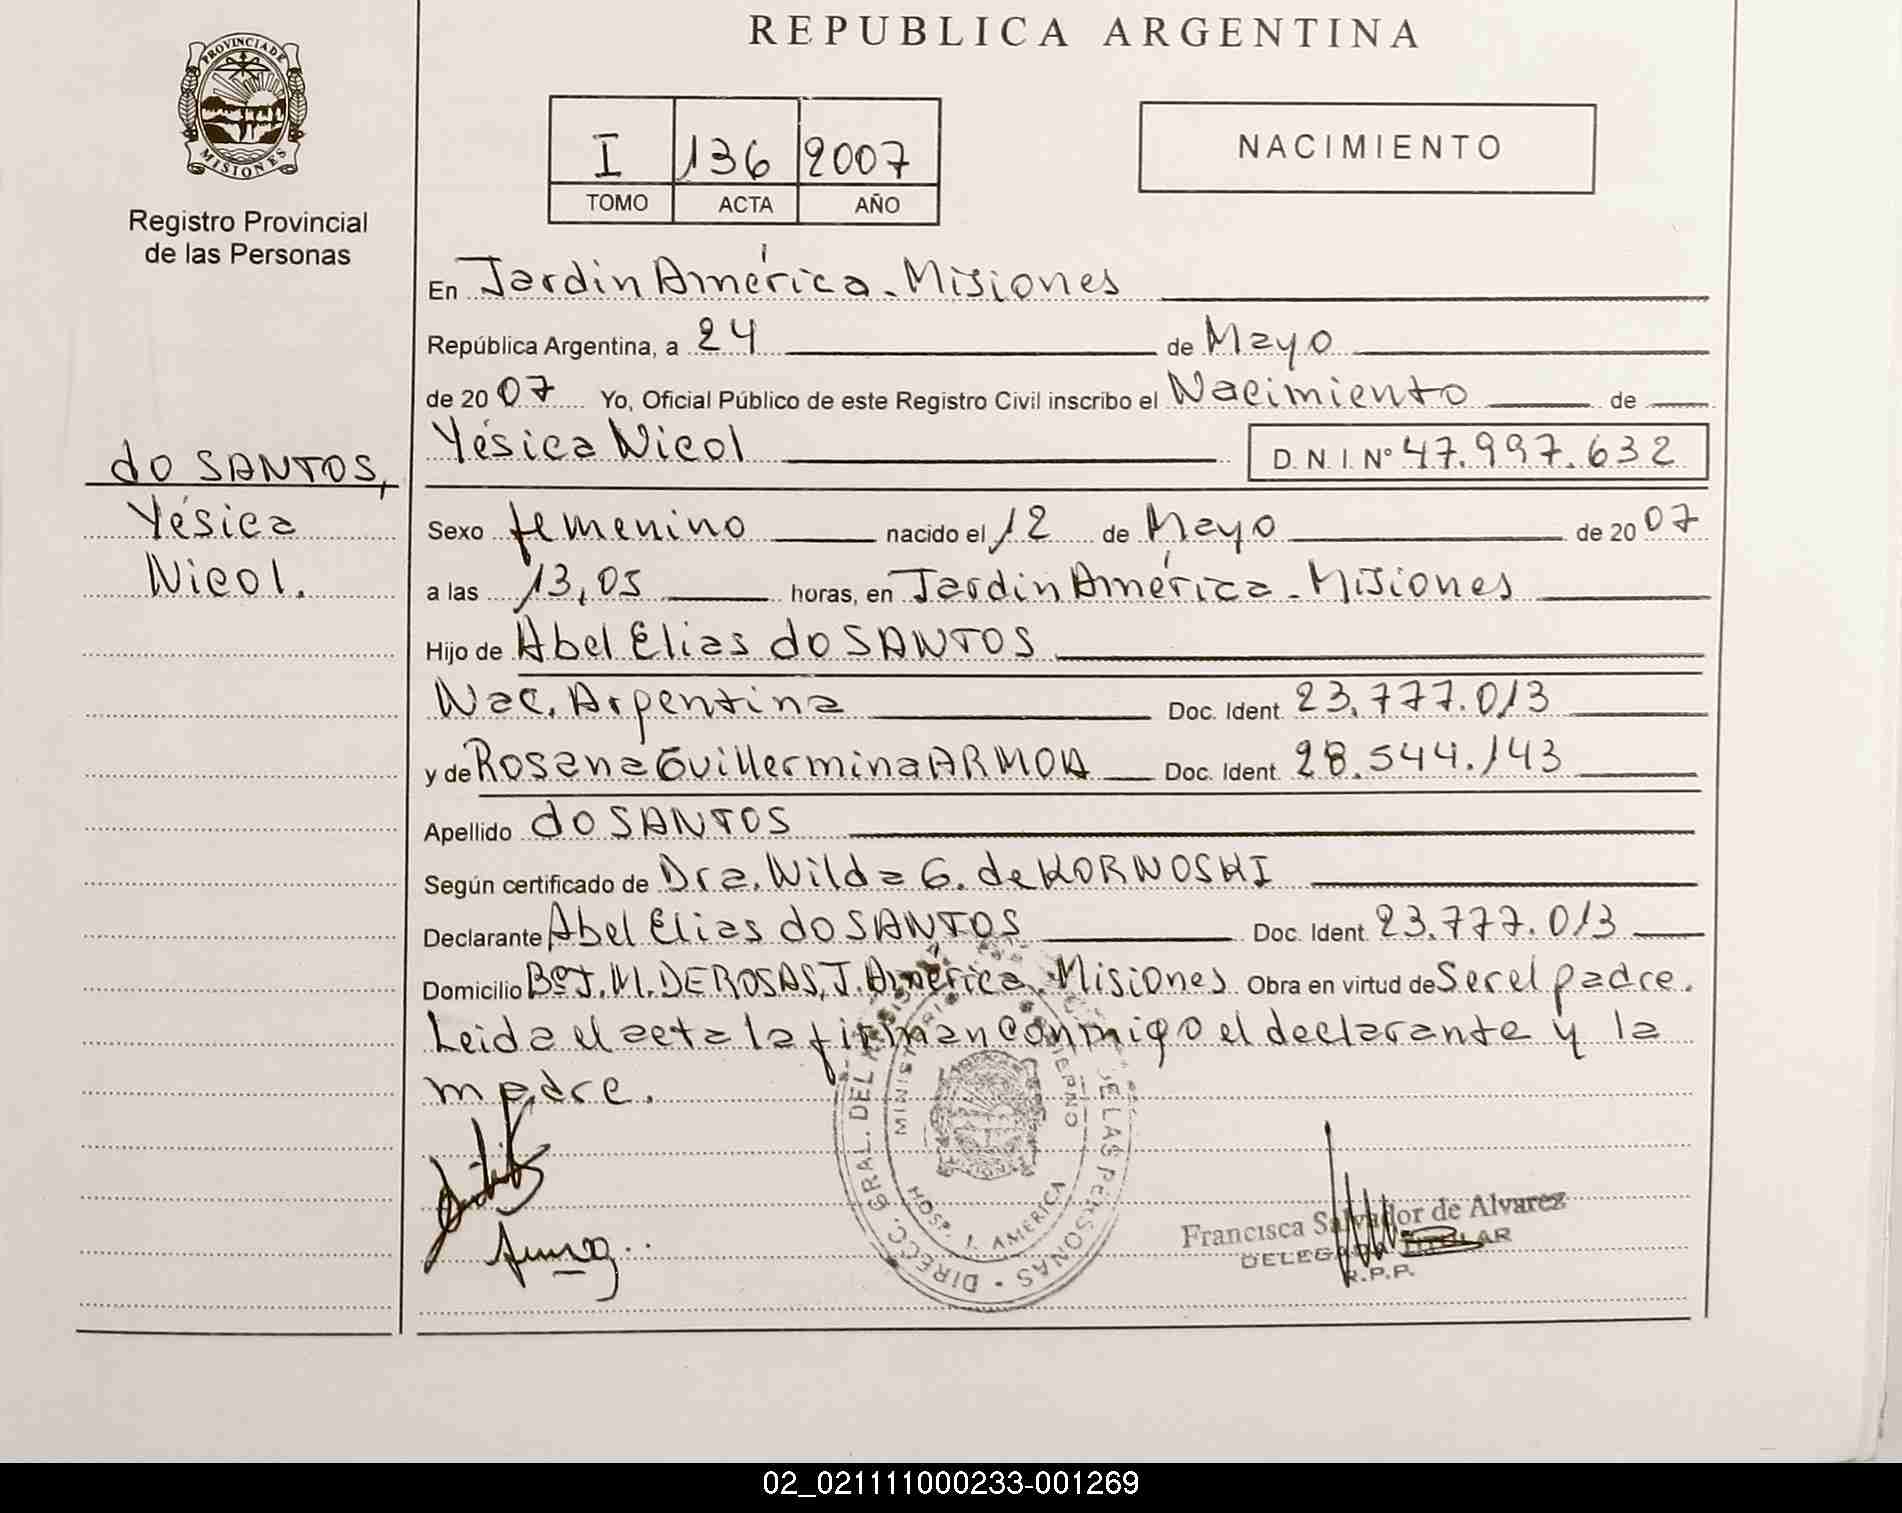 REPUBLICA ARGENTINA
PROVINCIA DE
MISIONES
Registro Provincial
de las Personas
I 136 2007
TOMO ACTA AÑO
NACIMIENTO
En Jardin América. Misiones
República Argentina, a 24 de Mayo
de 20 07 Yo, Oficial Público de este Registro Civil inscribo el Nacimiento de
Yésica Nicol D. N. I. Nº 47.997.632
do SANTOS,
Yésica
Nicol.
Sexo femenino nacido el 12 de Mayo de 20 07
a las 13,05 horas, en Jardin América - Misiones
Hijo de Abel Elias do SANTOS
Nac. Argentina Doc. Ident. 23.777.013
y de Rosana Guillermina ARMOA Doc. Ident. 28.544.143
Apellido do SANTOS
Según certificado de Dra. Nilda G. de KORNOSKI
Declarante Abel Elias do SANTOS Doc. Ident. 23.777.013
Domicilio Bº J. M. DE ROSAS, J. América. Misiones Obra en virtud de Ser el padre.
Leida el acta la firman conmigo el declarante y la
madre.
DIRECC. GRAL. DEL DE LAS PERSONAS
HOSP. J. AMERICA
Francisca Salvador de Alvarez
DELEGADA TITULAR
R.P.P.
02_021111000233-001269